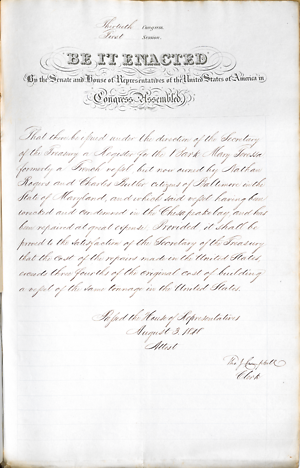 Thirtieth Congress
First Session.
BE IT ENACTED
By the Senate and House of Representatives of the United States of America in
Congress Assembled,
That there be issued under the direction of the Secretary
of the Treasury a Register for the Bark Mary Theresa
formerly a French vessel but now owned by Nathan
Rogers and Charles Butler citizens of Baltimore in the
State of Maryland, and which said vessel having been
wrecked and condemned in the Chesapeake bay and has
been repaired at great expense. Provided it shall be
proved to the satisfaction of the Secretary of the Treasury
that the cost of the repairs made in the United States,
exceeds three fourths of the original cost of building
a vessel of the same tonnage in the United States.
Passed the House of Representatives
August 3, 1848
Attest
Tho. J. Campbell
Clerk